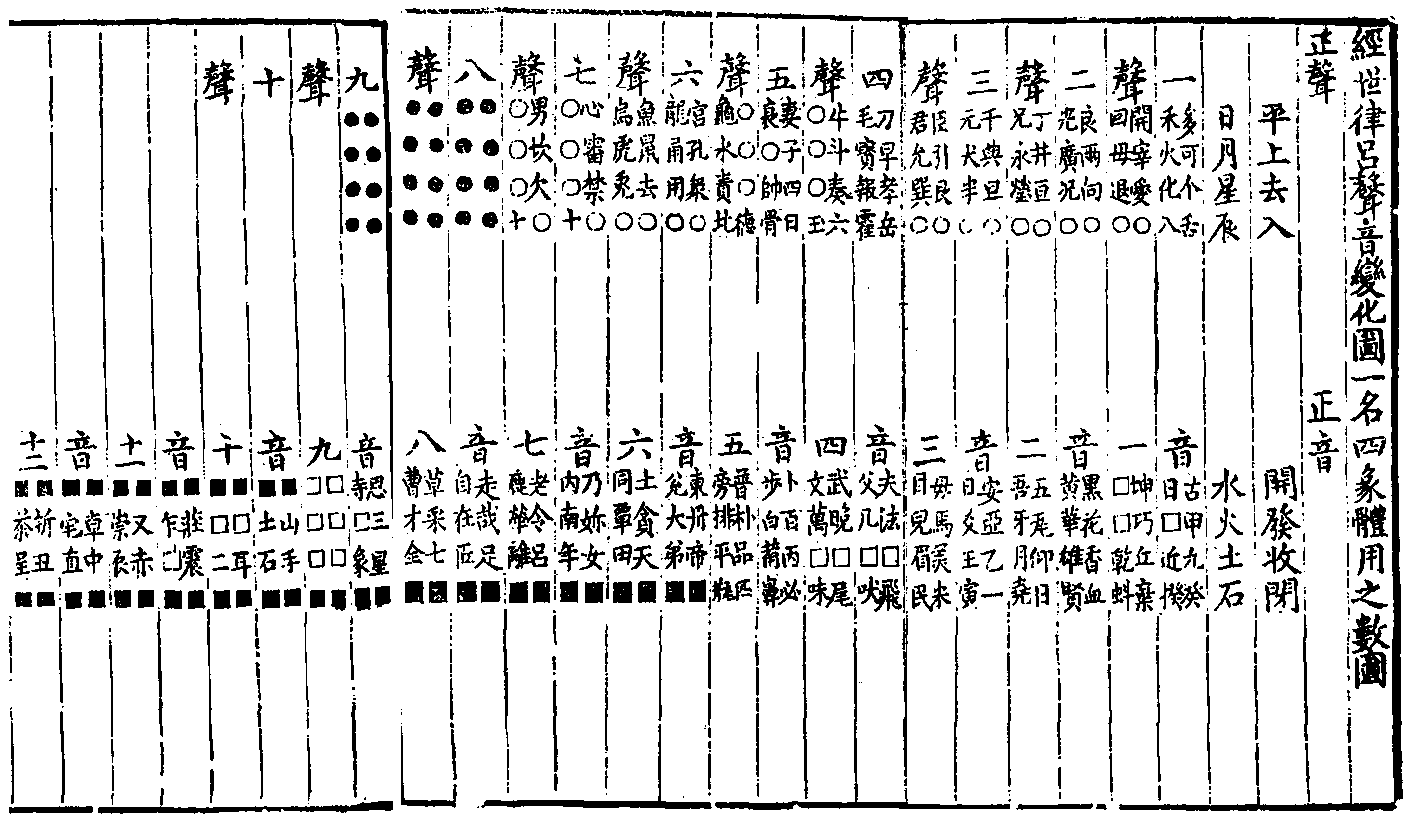 經世律呂聲音變化圖一名四象體用之數圖
正聲
平上去入
日月星辰
一 多可个舌
禾火化八
聲 開宰愛○
回每退○
二 良兩向○
光廣況○
聲 丁井亘○
兄永瑩○
三 千典旦○
元犬半○
聲 臣引艮○
君允巽○
四 刀早孝岳
毛寶報霍
聲 牛斗奏六
○○○玉
五 妻子四日
衰○帥骨
聲 ○○○德
龜水貴北
六 宮孔衆○
龍甬用○
聲 魚鼠去○
烏虎兔○
七 心審禁○
○○○十
聲 男坎欠○
○○○十
八 ●●●●
●●●●
聲 ●●●●
●●●●
九 ●●●●
●●●●
聲
十
聲
正音
開發收閉
水火土石
音 古甲九癸
日□近揆
一 坤巧丘棄
□□乾蚪
音 黑花香血
黃華雄賢
二 五瓦仰日
吾牙月堯
音 安亞乙一
日爻王寅
三 母馬美米
目皃眉民
音 夫法□飛
父凡□吠
四 武晚□尾
文萬□味
音 卜百丙必
步白萠鼻
五 普朴品匹
旁排平瓶
音 東丹帝■
兌大弟■
六 土貪天■
同覃田■
音 乃妳女■
內南年■
七 老冷呂■
鹿犖離■
音 走哉足■
自在匠■
八 草采七■
曹才全■
音 思三星■
寺□象■
九 □□□■
□□□■
音 ■山手■
■土石■
十 ■□耳■
■□二■
音 ■莊震■
■乍□■
十一 ■叉赤■
■崇辰■
音 ■卓中■
■宅直■
十二 ■坼丑■
■茶呈■